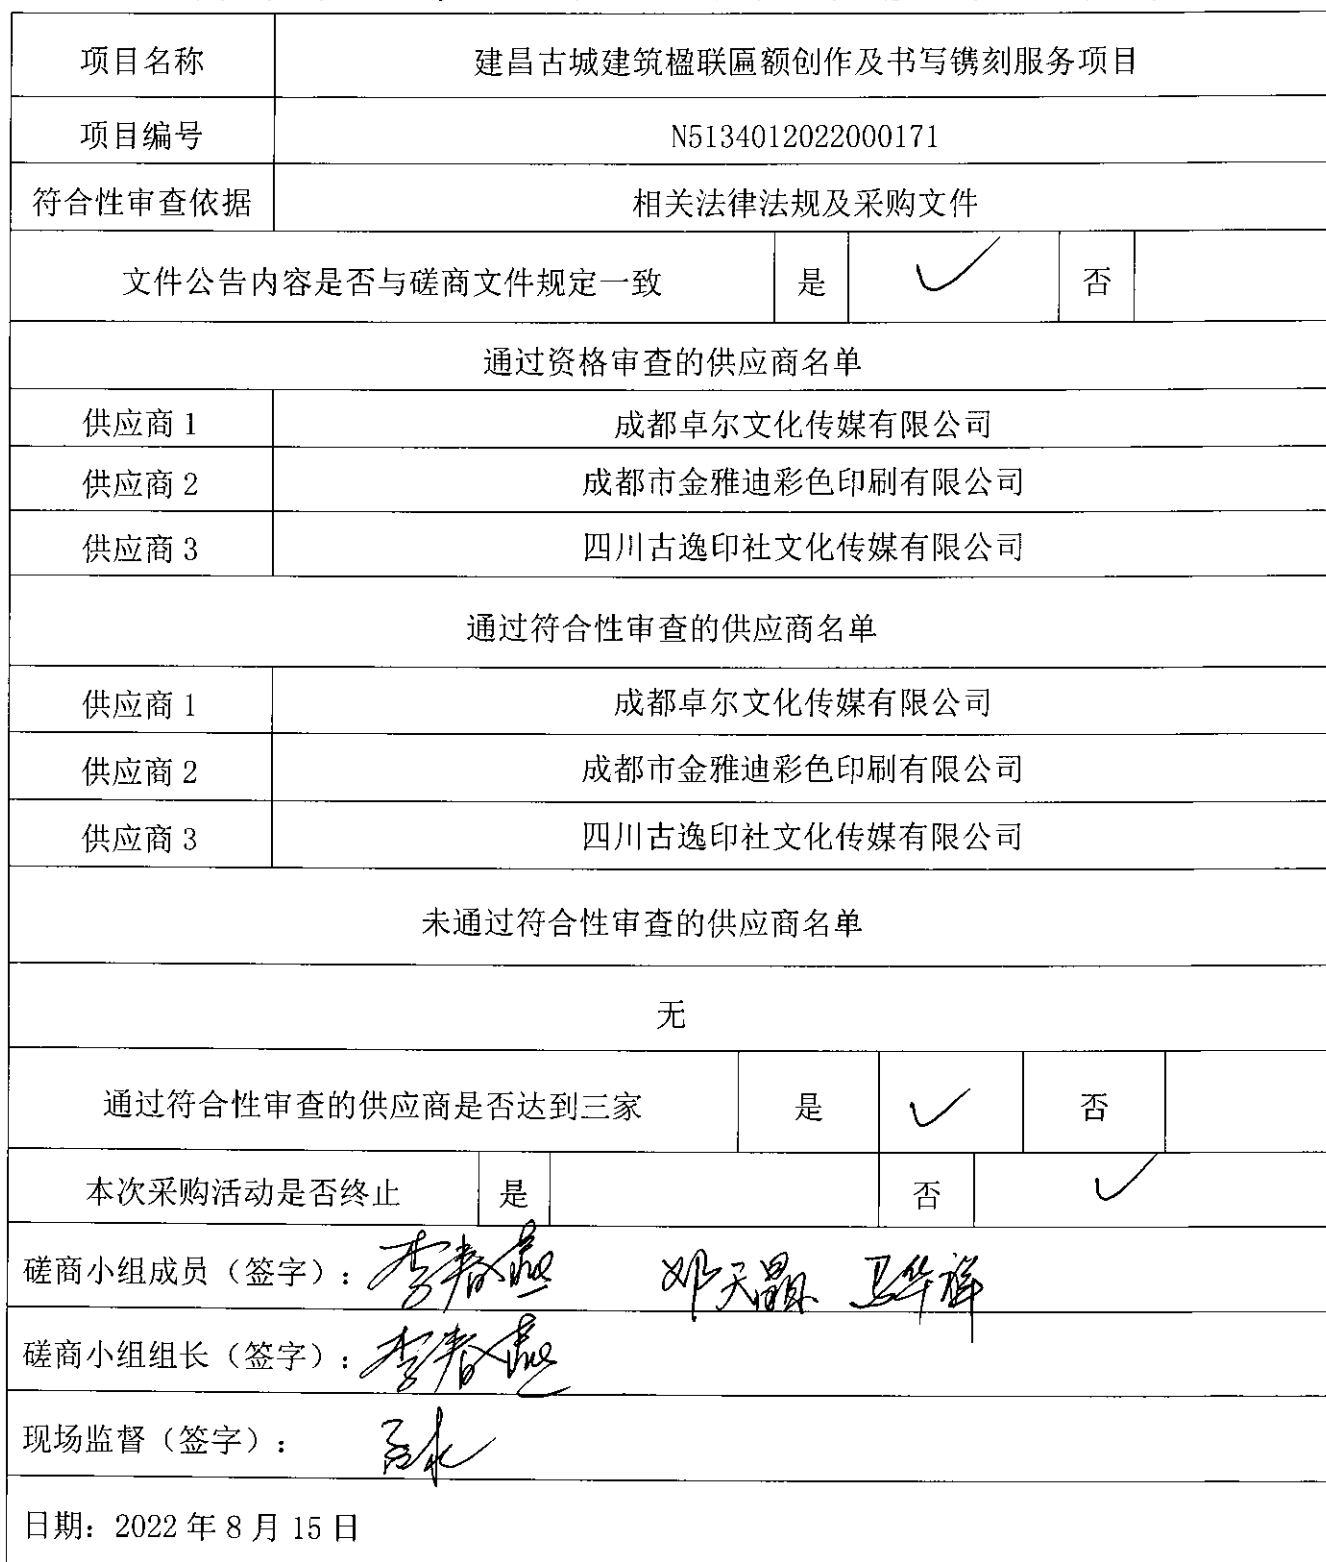 项目名称 建昌古城建筑楹联匾额创作及书写镌刻服务项目
项目编号 N5134012022000171
符合性审查依据 相关法律法规及采购文件
文件公告内容是否与磋商文件规定一致 是 ✓ 否
通过资格审查的供应商名单
供应商1 成都卓尔文化传媒有限公司
供应商2 成都市金雅迪彩色印刷有限公司
供应商3 四川古逸印社文化传媒有限公司
通过符合性审查的供应商名单
供应商1 成都卓尔文化传媒有限公司
供应商2 成都市金雅迪彩色印刷有限公司
供应商3 四川古逸印社文化传媒有限公司
未通过符合性审查的供应商名单
无
通过符合性审查的供应商是否达到三家 是 ✓ 否
本次采购活动是否终止 是 否 ✓
磋商小组成员（签字）：李春燕 邓天晶 卫华祥
磋商小组组长（签字）：李春燕
现场监督（签字）：
日期：2022年8月15日